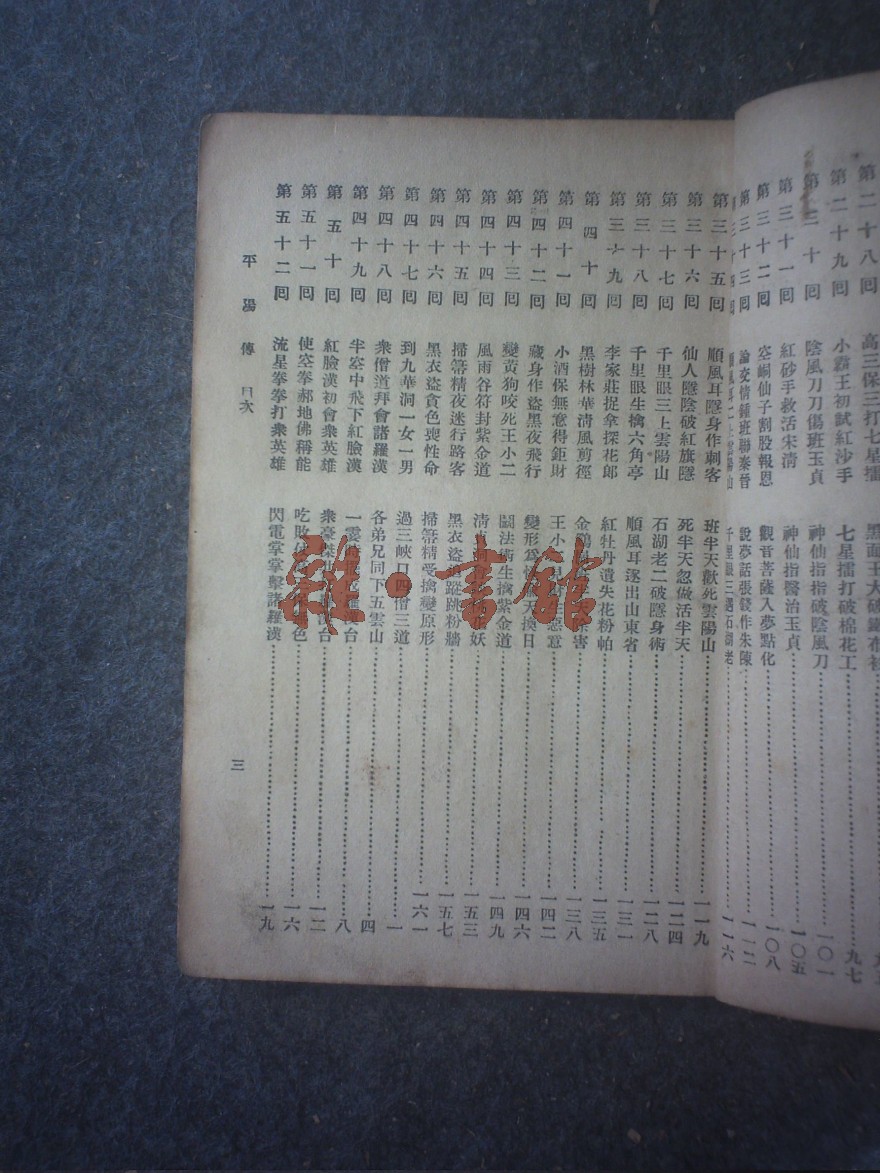 第二十八囘 高三保三打七星擂
第二十九囘 小霸王初試紅沙手 七星擂打破棉花工 九七
陰風刀刀傷班玉貞 神仙指指破陰風刀 一〇一
第三十一囘 紅砂手救活宋清 神仙指醫治玉貞 一〇五
第三十二囘 空峒仙子割股報恩 觀音菩薩入夢點化 一〇八
第三十三囘 論交情鍾班聯秦晉 說夢話張錢作朱陳 一一二
千里眼三遇石湖老 一一六
第三十五囘 順風耳隱身作刺客 班半天歡死雲陽山 一一九
第三十六囘 仙人隱陰破紅旗隱 死半天忽做活半天 一二四
第三十七囘 千里眼三上雲陽山 石湖老二破隱身術 一二八
第三十八囘 千里眼生擒六角亭 順風耳逐出山東省 一三一
第三十九囘 李家莊捉拿探花郎 紅牡丹遺失花粉帕 一三五
第四十囘 黑樹林華清風剪徑 金 害 一三八
第四十一囘 小酒保無意得鉅財 王小 惡意 一四二
第四十二囘 藏身作盜黑夜飛行 變形爲 天換日 一四六
第四十三囘 變黃狗咬死王小二 鬭法術生擒紫金道 一四九
第四十四囘 風雨谷符封紫金道 清 妖 一五三
第四十五囘 掃箒精夜迷行路客 黑衣盜 蹤跳粉牆 一五七
第四十六囘 黑衣盜貪色喪性命 掃箒精受擒變原形 一六一
第四十七囘 到九華洞一女一男 過三峽口四僧三道 一
第四十八囘 衆僧道拜會諸羅漢 各弟兄同下五雲山 四
第四十九囘 半空中飛下紅臉漢 一雲 羅 台 八
第五十囘 紅臉漢初會衆英雄 衆豪傑 台 一二
第五十一囘 使空拳郝地佛稱能 吃敗仗 色 一六
第五十二囘 流星拳拳打衆英雄 閃電掌掌擊諸羅漢 一九
平陽傳 目次
三
雜·書館